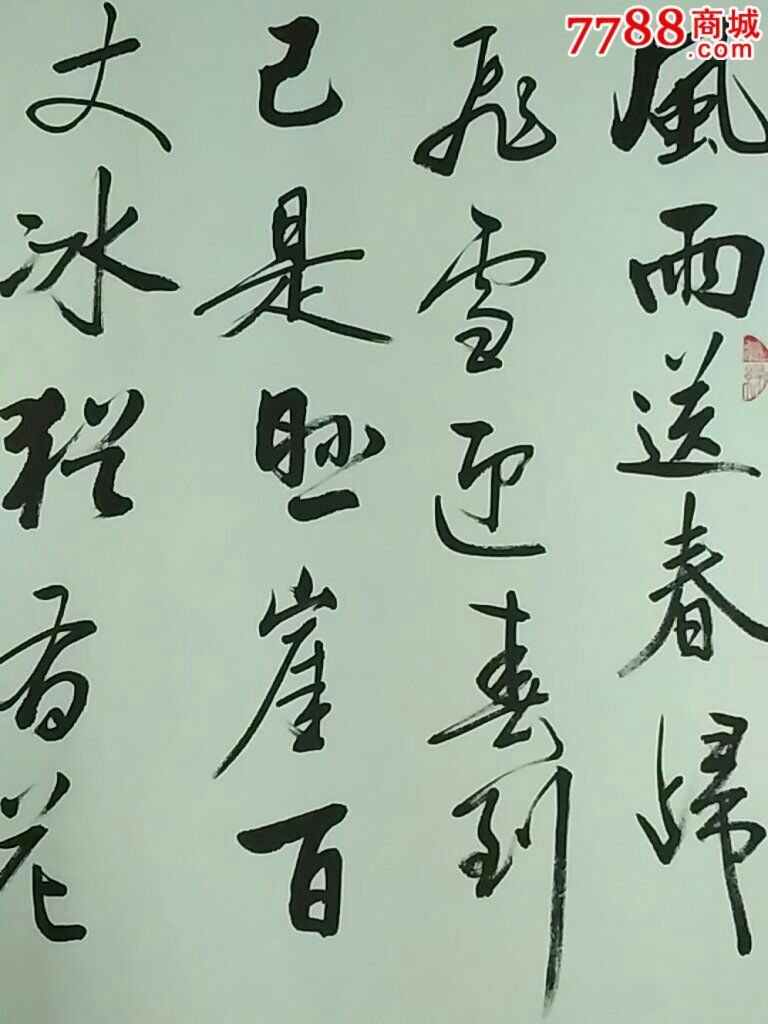 7788商城
.com
風雨送春歸
飛雪迎春到
已是懸崖百
丈冰猶有花